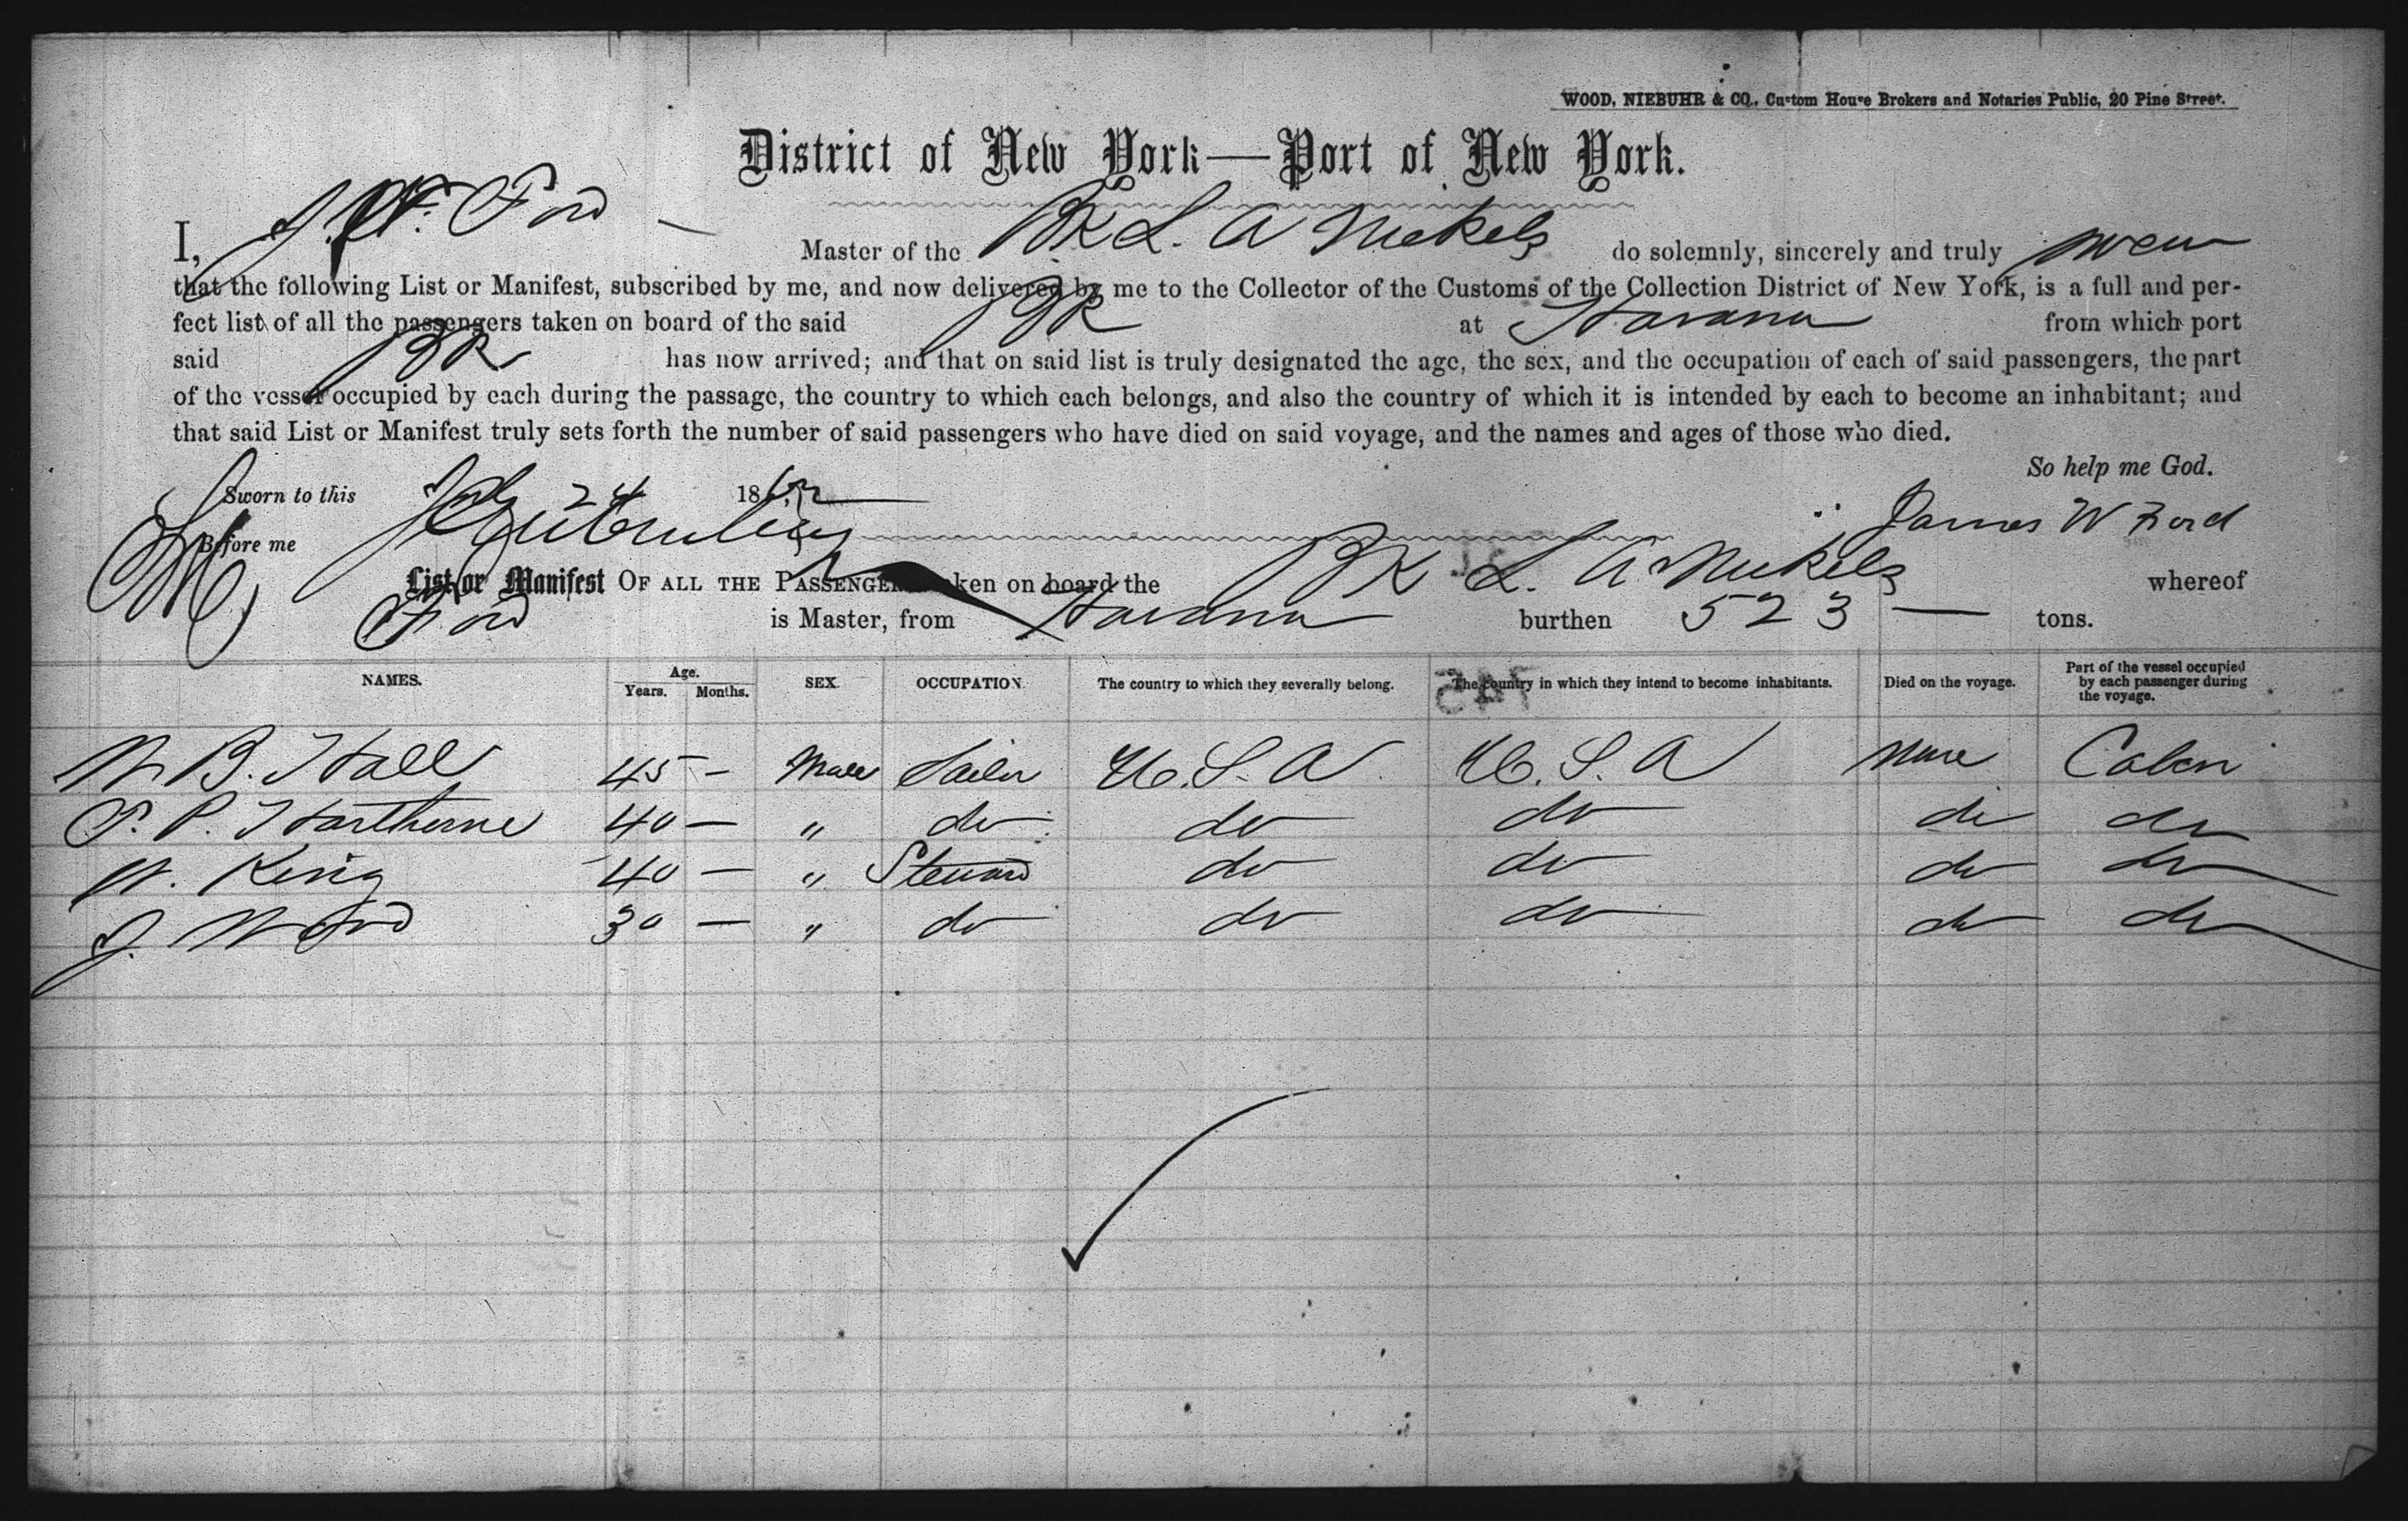 WOOD, NIEBUHR & CO., Custom House Brokers and Notaries Public, 20 Pine Street.
District of New York—Port of New York.
I, J. W. Ford Master of the BK L. A Nickels do solemnly, sincerely and truly swear
that the following List or Manifest, subscribed by me, and now delivered by me to the Collector of the Customs of the Collection District of New York, is a full and per-
fect list of all the passengers taken on board of the said BK at Havana from which port
said BK has now arrived; and that on said list is truly designated the age, the sex, and the occupation of each of said passengers, the part
of the vessel occupied by each during the passage, the country to which each belongs, and also the country of which it is intended by each to become an inhabitant; and
that said List or Manifest truly sets forth the number of said passengers who have died on said voyage, and the names and ages of those who died.
So help me God.
Sworn to this 24 186
James W Ford
Before me
List or Manifest OF ALL THE PASSENGERS taken on board the BK L. A Nickels whereof
Ford is Master, from Havana burthen 523 — tons.
NAMES. Age. Years. Months. SEX. OCCUPATION. The country to which they severally belong. The country in which they intend to become inhabitants. Died on the voyage. Part of the vessel occupied by each passenger during the voyage.
W B. Hall 45 — Male Sailor U. S. A U. S. A None Cabin
P. P. Harthorne 40 — " do do do do do
W. King 40 — " Steward do do do do
J. W Ford 30 — " do do do do do